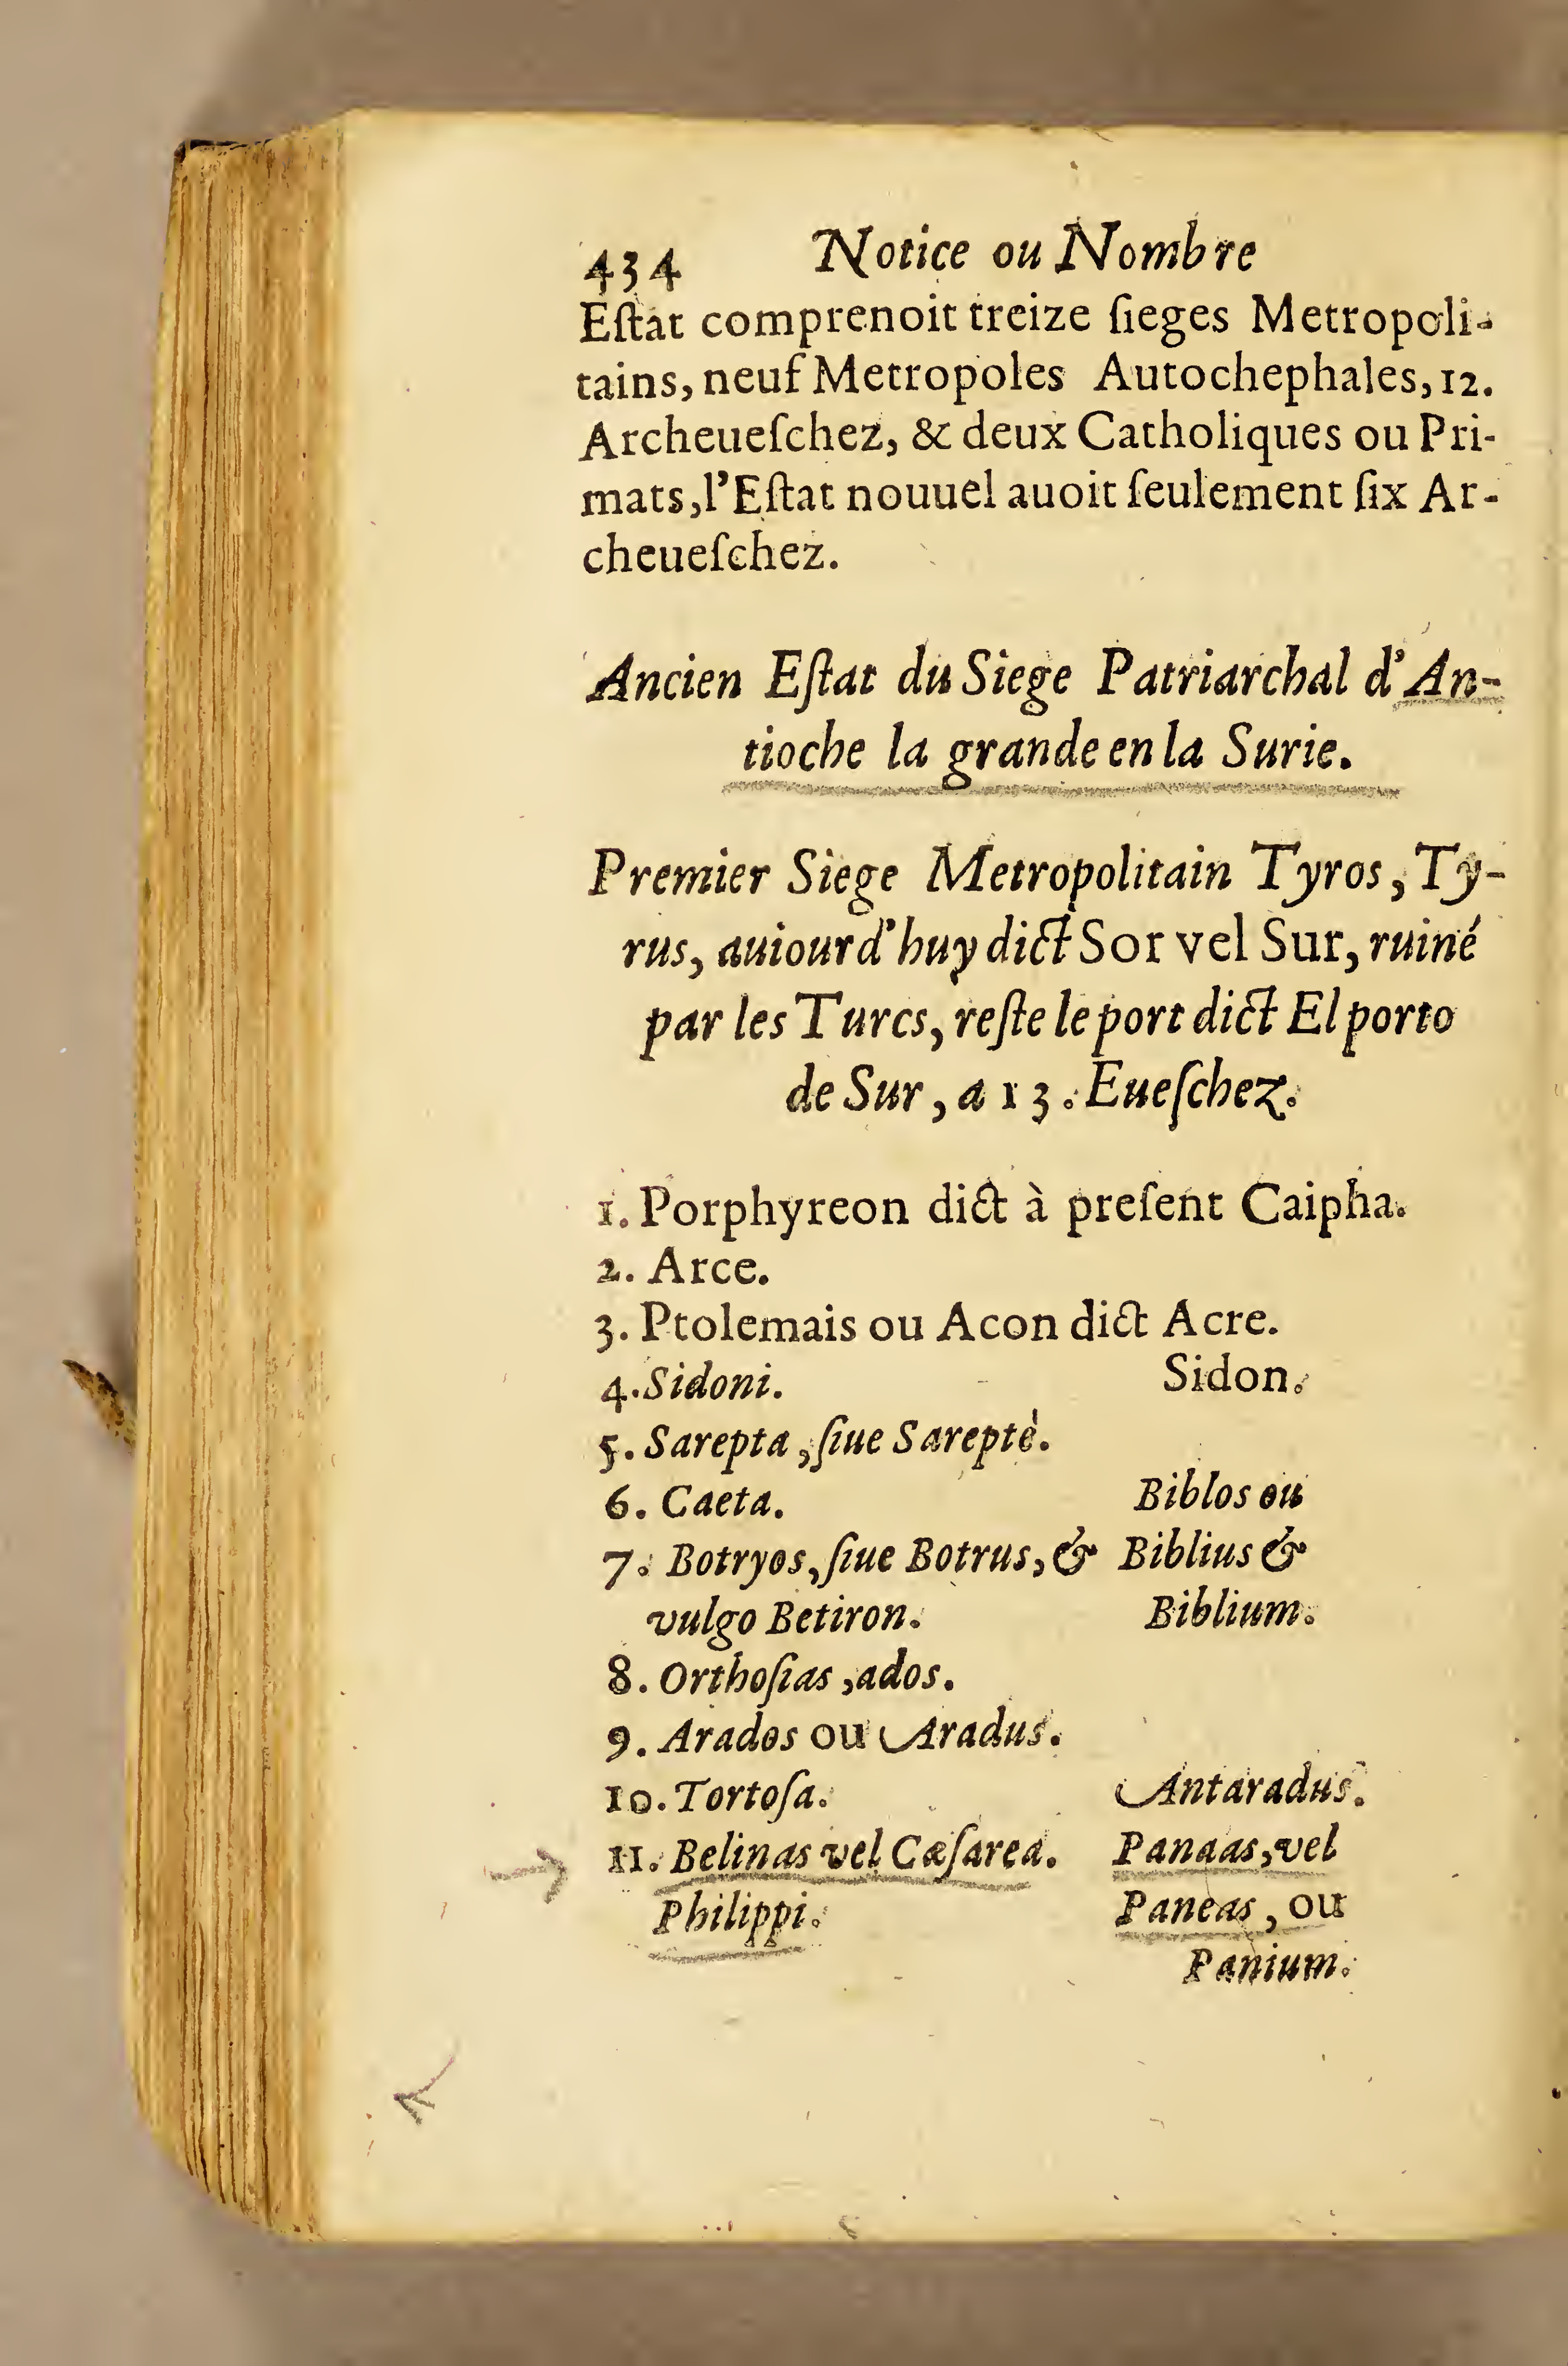 434 Notice ou Nombre
Eſtat comprenoit treize ſieges Metropoli-
tains, neuf Metropoles Autochephales, 12.
Archeueſchez, & deux Catholiques ou Pri-
mats, l'Eſtat nouuel auoit ſeulement ſix Ar-
cheueſchez.
Ancien Eſtat du Siege Patriarchal d'An-
tioche la grande en la Surie.
Premier Siege Metropolitain Tyros, Ty-
rus, auiourd'huy dict Sor vel Sur, ruiné
par les Turcs, reſte le port dict El porto
de Sur, a 13. Eueſchez.
1. Porphyreon dict à preſent Caipha.
2. Arce.
3. Ptolemais ou Acon dict Acre.
4. Sidoni. Sidon.
5. Sarepta, ſiue Sareptè.
6. Caeta. Biblos ou
7. Botryos, ſiue Botrus, & Biblius &
vulgo Betiron. Biblium.
8. Orthoſias, ados.
9. Arados ou Aradus.
10. Tortoſa. Antaradus.
11. Belinas vel Cæſarea. Panaas, vel
Philippi. Paneas, ou
Panium.